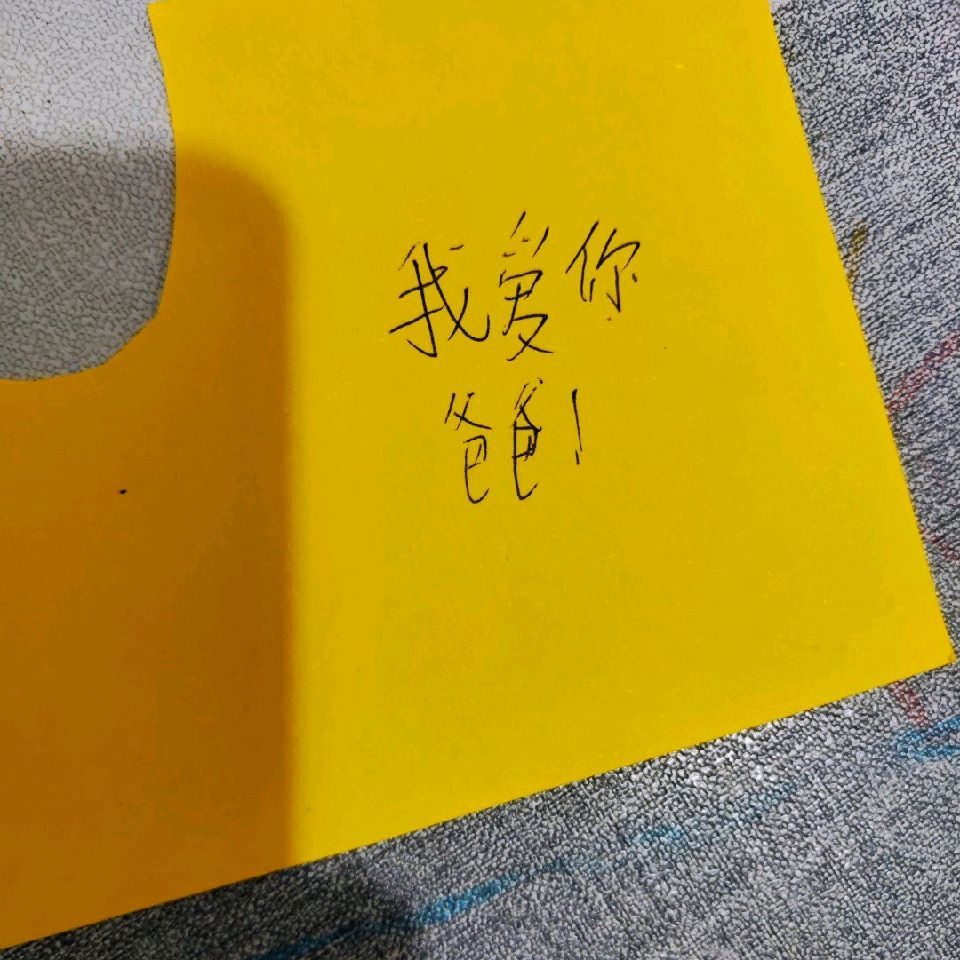 我爱你
爸爸！